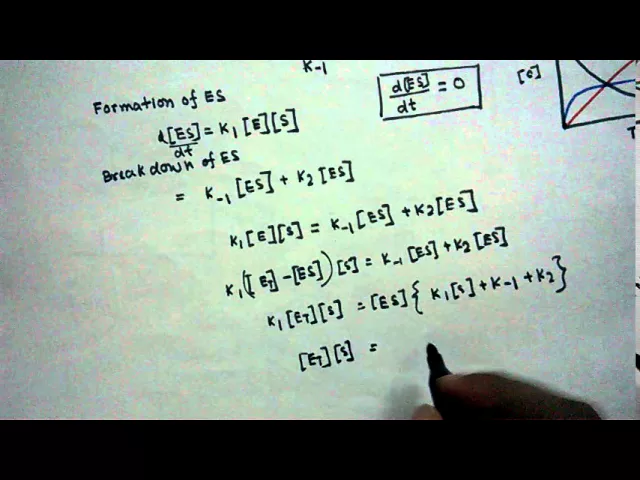 K-1
Formation of ES
d[ES]/dt = K1[E][S]
Breakdown of ES
= K-1[ES] + K2[ES]
d[ES]/dt = 0
[c]
T
K1[E][S] = K-1[ES] + K2[ES]
K1([ET] - [ES])[S] = K-1[ES] + K2[ES]
K1[ET][S] = [ES]{K1[S] + K-1 + K2}
[ET][S] =